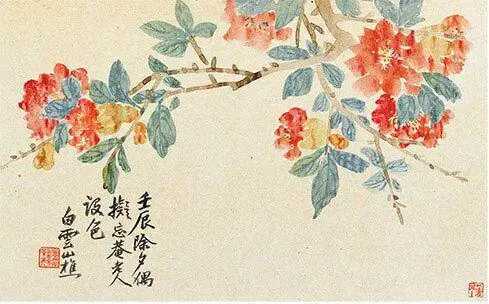 壬辰除夕偶
擬忘菴老人
設色
白雲山樵